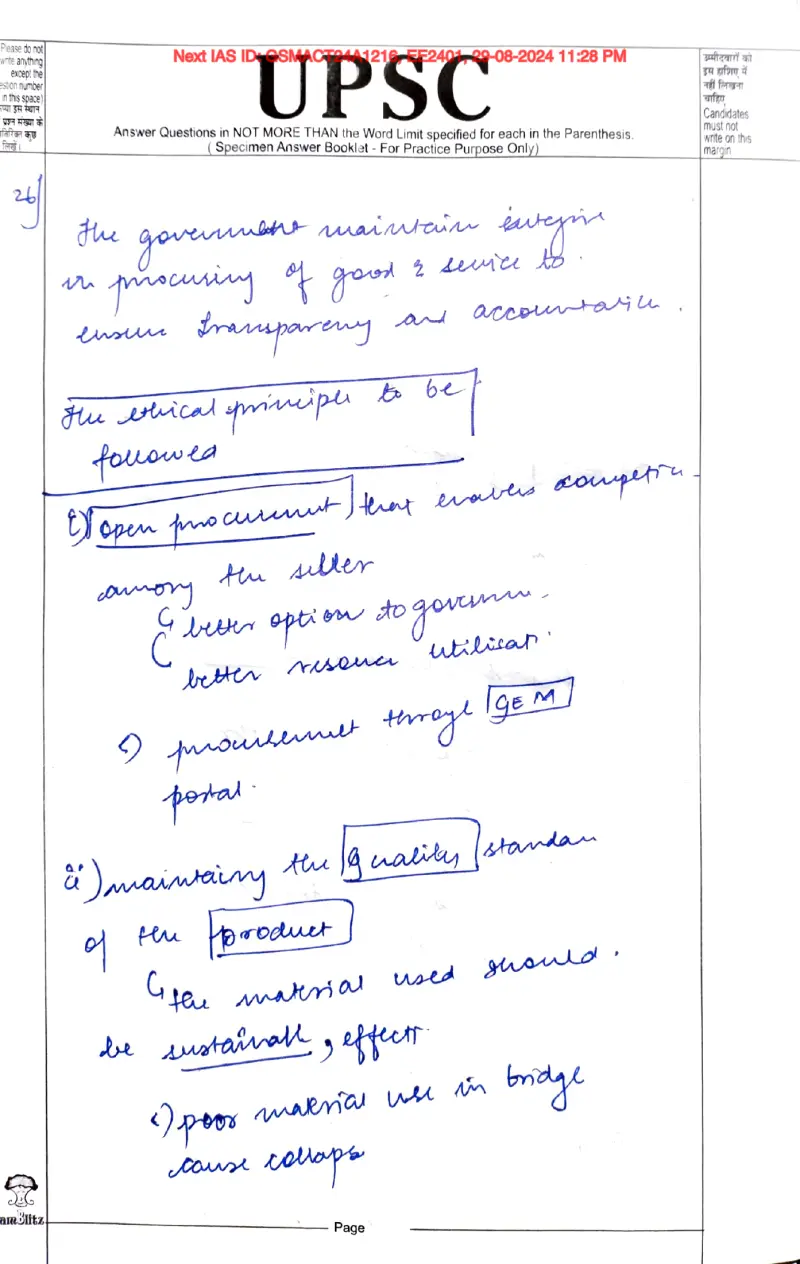 Please do not
write anything
except the
question number
in this space)
Next IAS ID: GSMACT24A1216, EE2401, 29-08-2024 11:28 PM
UPSC
Answer Questions in NOT MORE THAN the Word Limit specified for each in the Parenthesis.
( Specimen Answer Booklet - For Practice Purpose Only)
उम्मीदवारों को
इस हाशिए में
नहीं लिखना
चाहिए
Candidates
must not
write on this
margin
2b)
The government maintain
in procuring of good & service to
ensure transparency and
The ethical principle to be
followed
i) open procurement) that enables
among the seller
better option to
better
procurement through GEM
portal.
ii) maintaing the quality
of the product
the material used should.
be
poor material use in bridge
cause
Page